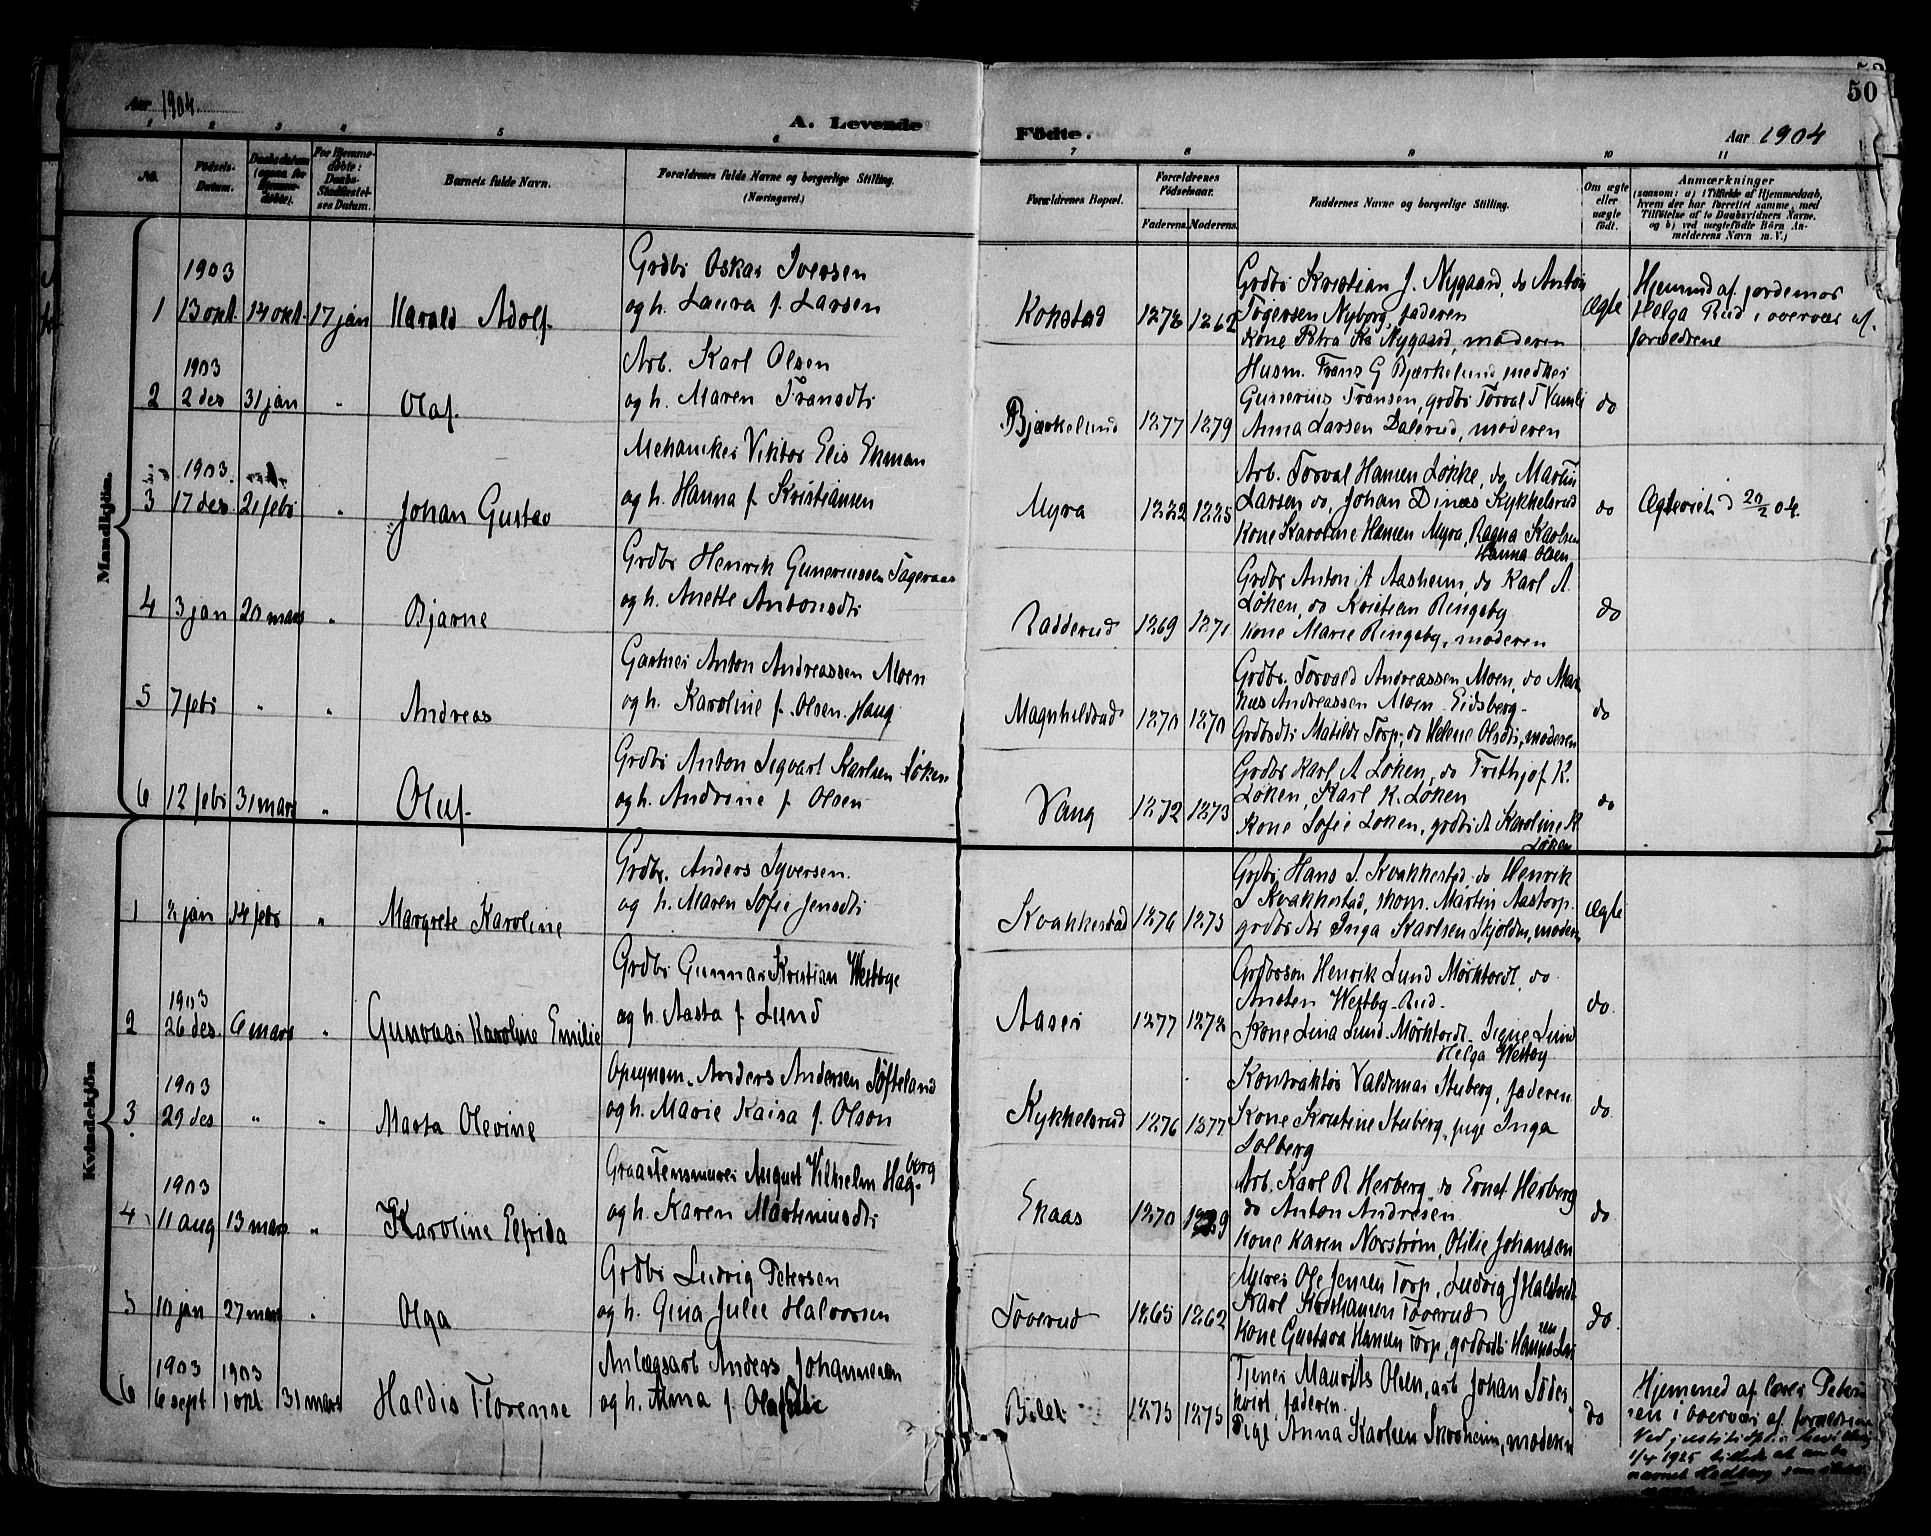 50
Aar 1904
A. Levende
Födte.
Aar 1904
1 2 3 4 5 6 7 8 9 10 11
No.
Födsels-Datum.
Daabsdatum (ogsaa for Hjemmedöbte).
For Hjemmedöbte: Daabs-Stadfæstelses Datum.
Barnets fulde Navn.
Forældrenes fulde Navne og borgerlige Stilling. (Næringsvei.)
Forældrenes Bopæl.
Forældrenes Födselsaar.
Faderens. Moderens.
Faddernes Navne og borgerlige Stilling.
Om ægte eller uægte födt.
Anmærkninger
(saasom: a) i Tilfælde af Hjemmedaab, hvem der har forrettet samme, med Tilföielse af to Daabsvidners Navne, og b) ved uægtefödte Börn Anmelderens Navn m. V.)
Mandkjön.
1 1903 13 okt. 14 okt. 17 jan Harald Adolf.
Grdbr Oskar Iversen
og h. Laura f. Larsen
Kokstad 1872 1862
Grdbr Kristian J. Nygaard, do Anton
Togersen Nyborg, faderen
Kone Petra Ks Nygaard, moderen
Ægte
Hjemmed af jordemor
Helga Rud i overvær af
forældrene
2 1903 2 des 31 jan " Olaf.
Arb. Karl Olsen
og h. Maren Fransdtr
Bjærkelund 1877 1879
Husm. Frans G Bjærkelund, snedker
Gunerius Fransen, grdbr Torval T
Anna Larsen Dalerud, moderen
do
3 1903 17 des 21 febr " Johan Gustav
Mekaniker Viktor Elis Ekman
og h. Hanna f. Kristiansen
Myra 1882 1885
Arb. Torval Hansen Løkke, do Martin
Larsen do, Johan Dinæs Kykkelsrud
Kone Karoline Hansen Myra, Ragna Karlsen
Hanna Olsen
do
Ægteviet d 20/2 04.
4 3 jan 20 mars " Bjarne
Grdbr Henrik Gunerinssen Fageraas
og h. Anette Antonsdtr
Radderud 1869 1871
Grdbr Anton A Aasheim, do Karl A.
Løken, do Kristian Ringsby
Kone Marie Ringsby, moderen
do
5 7 febr " " Andreas
Gartner Anton Andreassen Moen
og h. Karoline f. Olsen Haug
Magnhildrud 1870 1870
Grdbr. Torvald Andreassen Moen, do Mar
kus Andreassen Moen - Eidsberg -
Grdbrdtr Matilde Torp, do Helene Olsdtr, moderen
do
6 12 febr 31 mars " Oluf.
Grdbr Anton Sigvart Karlsen Løken
og h. Andrine f. Olsen
Vang 1872 1873
Grdbr Karl A Løken, do Frithjof K.
Løken, Karl K. Løken
Kone Sofie Løken, grdbrdt Karoline K.
Løken
do
Kvindekjön
1 2 jan 14 febr " Margrete Karoline
Grdbr. Anders Syversen.
og h. Maren Sofie Jensdtr
Kvakkestad 1876 1873
Grdbr Hans S. Kvakkestad do Henrik
S Kvakkestad, skom. Martin Aastorp.
grdbrdtr Inga Karlsen Skjolden, moderen
Ægte
2 1903 26 des. 6 mars " Gunvaar Karoline Emilie
Grdbr Gunnar Kristian Westbye
og h. Aasta f. Lund
Aaser 1877 1872
Grdbrsøn Henrik Lund Mørktvedt, do
Ansten Westby-Rud-
Kone Lina Lund-Mørktvedt- Signe Lund
Helga Westby
do.
3. 1903 29 des " " Marta Olevine
Opsynsm. Anders Andersen Søfteland
og h. Marie Kaisa f. Olson
Kykkelsrud 1876 1877
Kontraktør Valdemar Stuberg, faderen
Kone Kristine Stuberg, pige Inga
Solberg
do
4 1903 11 aug 13 mars " Karoline Elfrida
Graastensmurer August Vilhelm Hagberg
og h. Karen Martiniusdtr
Ekaas 1870
Arb. Karl R. Herberg, do Ernst Herberg
do Anton Andresen
Kone Karen Norstrøm, Otilie Johansen
do
5 10 jan 27 mars " Olga
Grdbr Ludvig Petersen
og h. Gina Julie Halvorsen
Toverud 1865 1862
Murer Ole Jensen Torp, Ludvig J Halstvedt
Karl Kristiansen Toverud
Kone Gustava Hansen Torp, grdbrdtr Hanna Larsen
do
6 1903 6 sept 1903 1 okt 31 mars Haldis Florense
Anlægsarb Anders Johannesen
og h. Anna f.
Billet 1875 1875
Tjener Maurits Olsen, arb Johan Søder
kvist, faderen.
Pige Anna Karlsen Skroheim, moderen
do
Hjemmed af Peters
sen i overvær af forældrene
Ved justitsdp.s bevilling
1/4 1925 tillatt at anta
navnet Hedberg som slekts
navn.